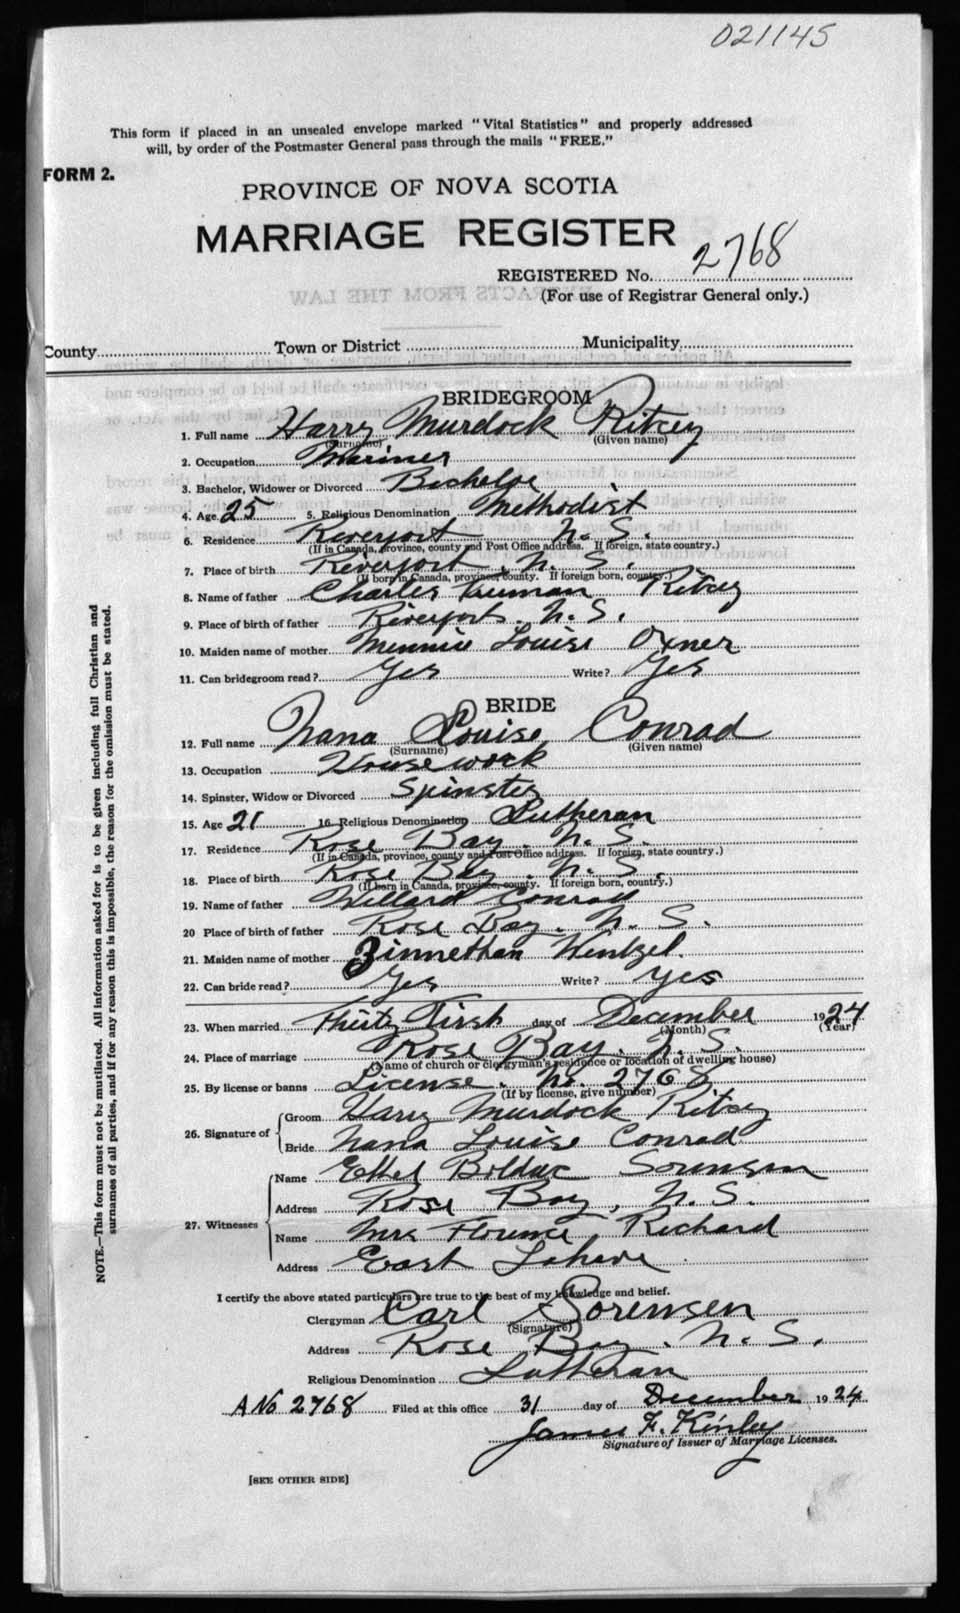 021145
This form if placed in an unsealed envelope marked "Vital Statistics" and properly addressed
will, by order of the Postmaster General pass through the mails "FREE."
FORM 2.
PROVINCE OF NOVA SCOTIA
MARRIAGE REGISTER
REGISTERED No. 2768
(For use of Registrar General only.)
County Town or District Municipality
BRIDEGROOM
1. Full name Harry Murdock Ritcey
(Surname) (Given name)
2. Occupation Mariner
3. Bachelor, Widower or Divorced Bachelor
4. Age 25 5. Religious Denomination Methodist
6. Residence Riverport N. S.
(If in Canada, province, county and Post Office address. If foreign, state country.)
7. Place of birth Riverport. N. S.
(If born in Canada, province, county. If foreign born, country.)
8. Name of father Charles Truman Ritcey
9. Place of birth of father Riverport. N. S.
10. Maiden name of mother Minnie Louise Oxner
11. Can bridegroom read? Yes Write? Yes
BRIDE
12. Full name Nana Louise Conrad
(Surname) (Given name)
13. Occupation Housework
14. Spinster, Widow or Divorced Spinster
15. Age 21 16. Religious Denomination Lutheran
17. Residence Rose Bay. N. S.
(If in Canada, province, county and Post Office address. If foreign, state country.)
18. Place of birth Rose Bay. N. S.
(If born in Canada, province, county. If foreign born, country.)
19. Name of father Willard Conrad
20 Place of birth of father Rose Bay. N. S.
21. Maiden name of mother Zinnethan Wentzel.
22. Can bride read? Yes Write? Yes
23. When married Thirty First day of December 1924
(Month) (Year)
24. Place of marriage Rose Bay. N. S.
(Name of church or clergyman's residence or location of dwelling house)
25. By license or banns License. No. 2768
(If by license, give number)
26. Signature of
Groom Harry Murdock Ritcey
Bride Nana Louise Conrad
27. Witnesses
Name Ethel Bolduc Sorensen
Address Rose Bay, N. S.
Name Mrs Florence Richard
Address East Lahave
I certify the above stated particulars are true to the best of my knowledge and belief.
Clergyman Carl Sorensen
(Signature)
Address Rose Bay. N. S.
Religious Denomination Lutheran
A No 2768 Filed at this office 31 day of December 1924
James F. Kinley
Signature of Issuer of Marriage Licenses.
[SEE OTHER SIDE]
NOTE.—This form must not be mutilated. All information asked for is to be given including full Christian and
surnames of all parties, and if for any reason this is impossible, the reason for the omission must be stated.